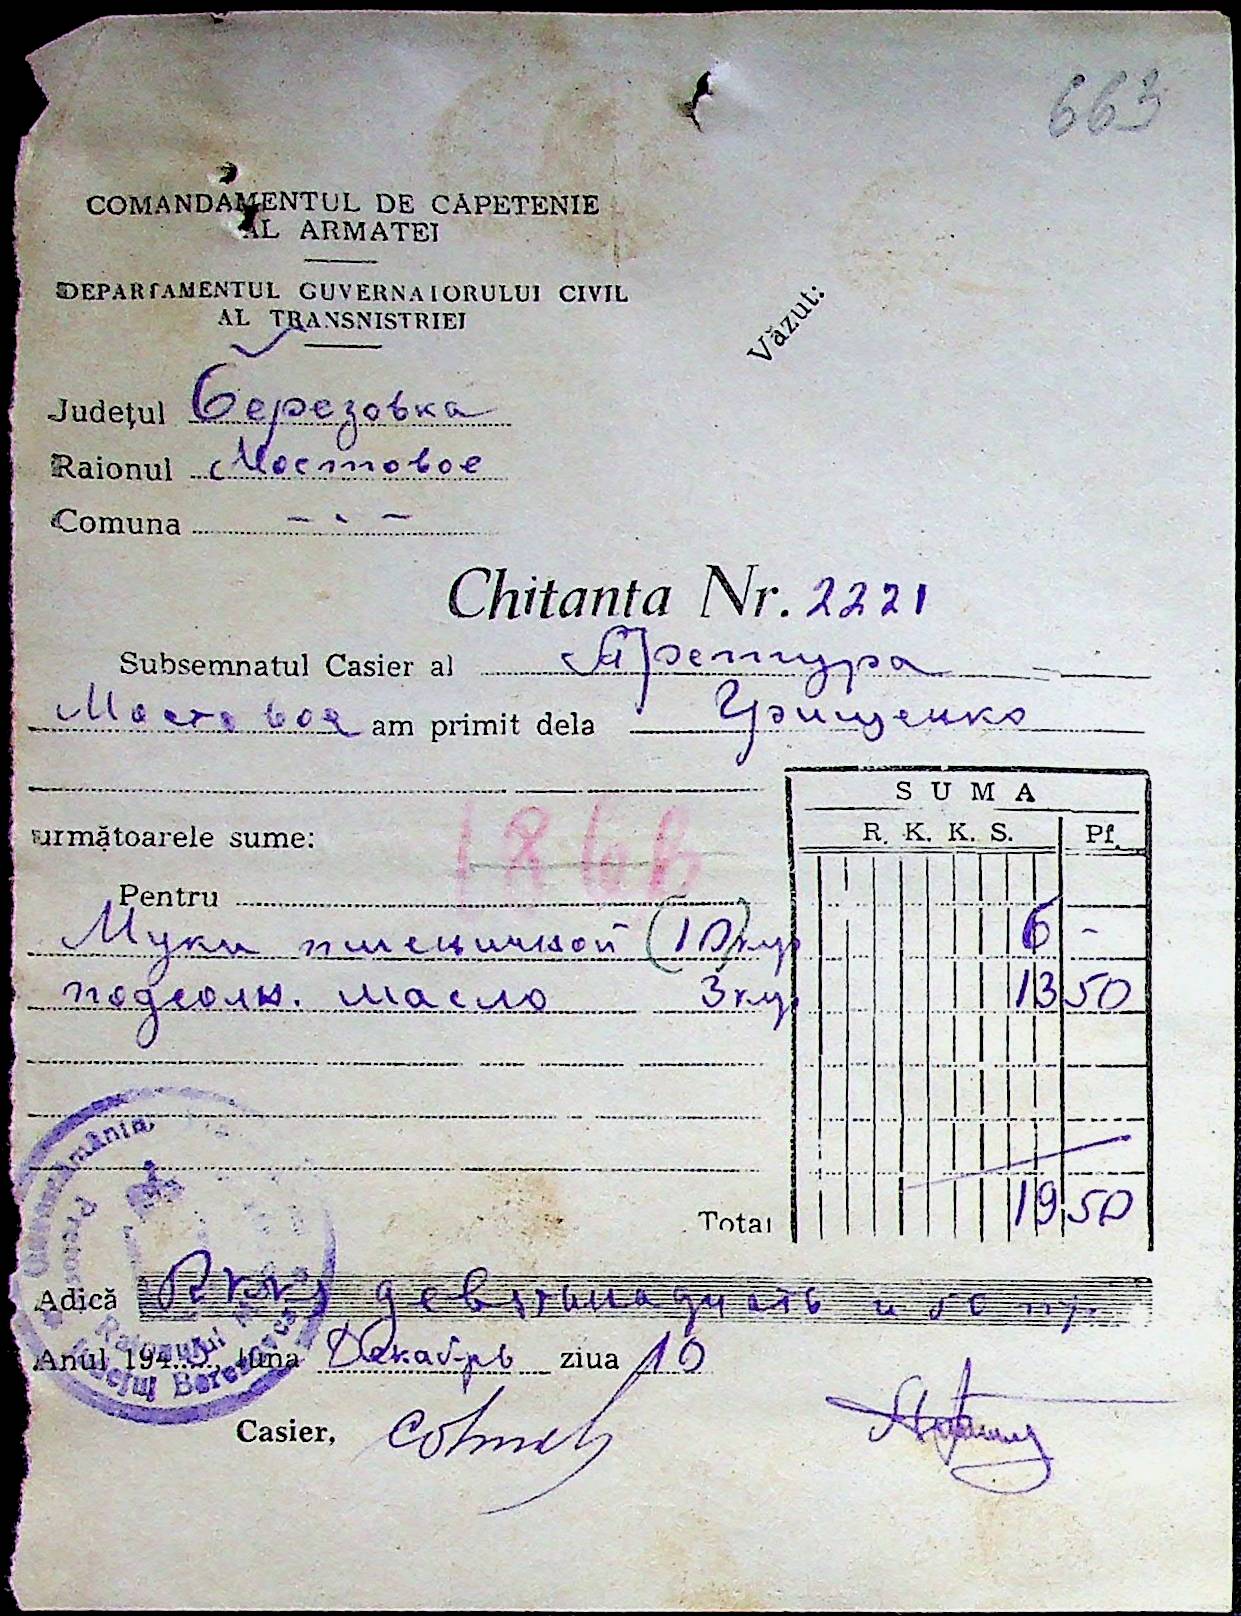 663
COMANDAMENTUL DE CAPETENIE
AL ARMATEI
DEPARTAMENTUL GUVERNATORULUI CIVIL
AL TRANSNISTRIEI
Văzut:
Județul Березовка
Raionul Мостовое
Comuna - . -
Chitanta Nr. 2221
Subsemnatul Casier al Претура
Мостовое am primit dela Грищенко
SUMA
următoarele sume: R. K. K. S. Pf.
Pentru
Муки пшеничной (10) кгр 6 -
подсолн. масло 3 кгр 13 50
Total 19 50
Adică девятнадцать и 50 пф.
Anul 194 luna Декабрь ziua 10
Casier,
Guvernământul
Raionului
Județul Beresovca